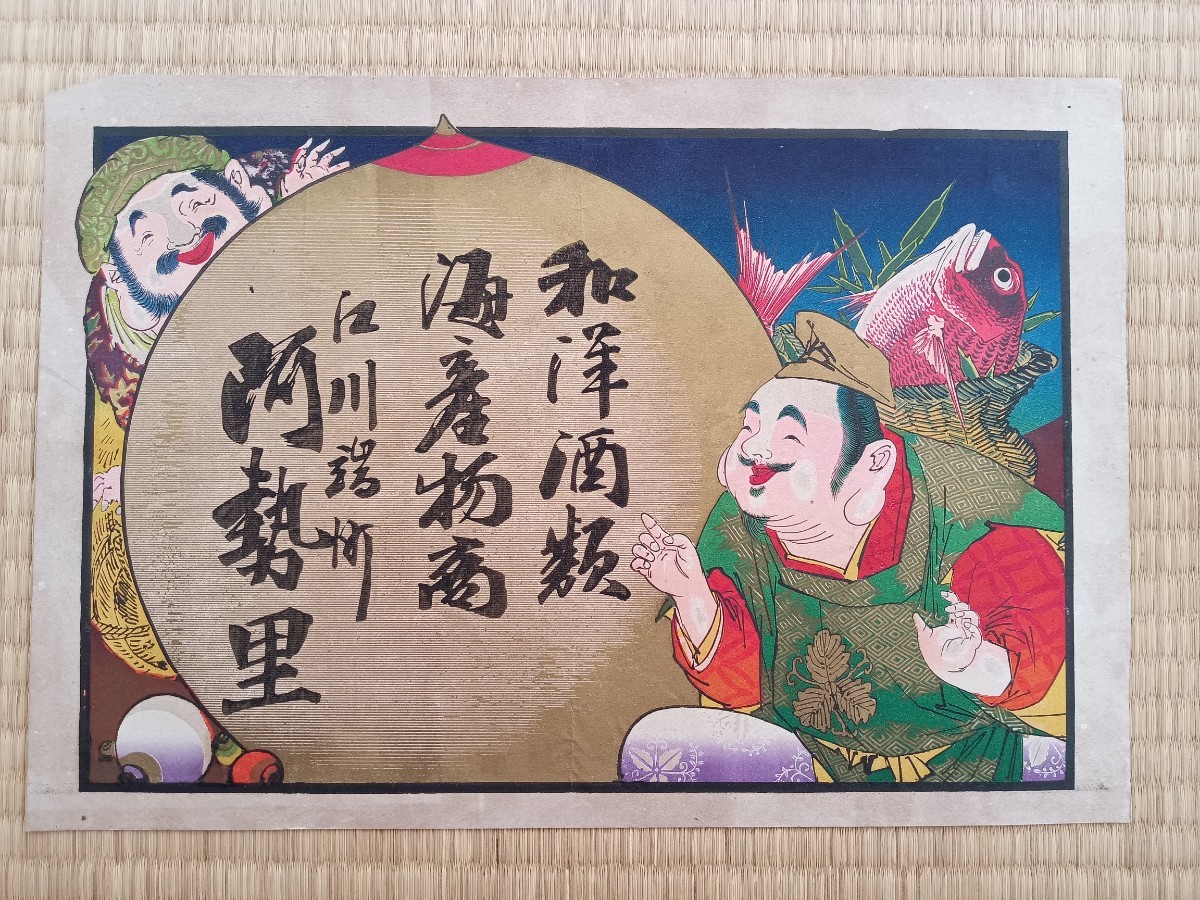 和洋酒類
海産物商
江川端町
阿勢里